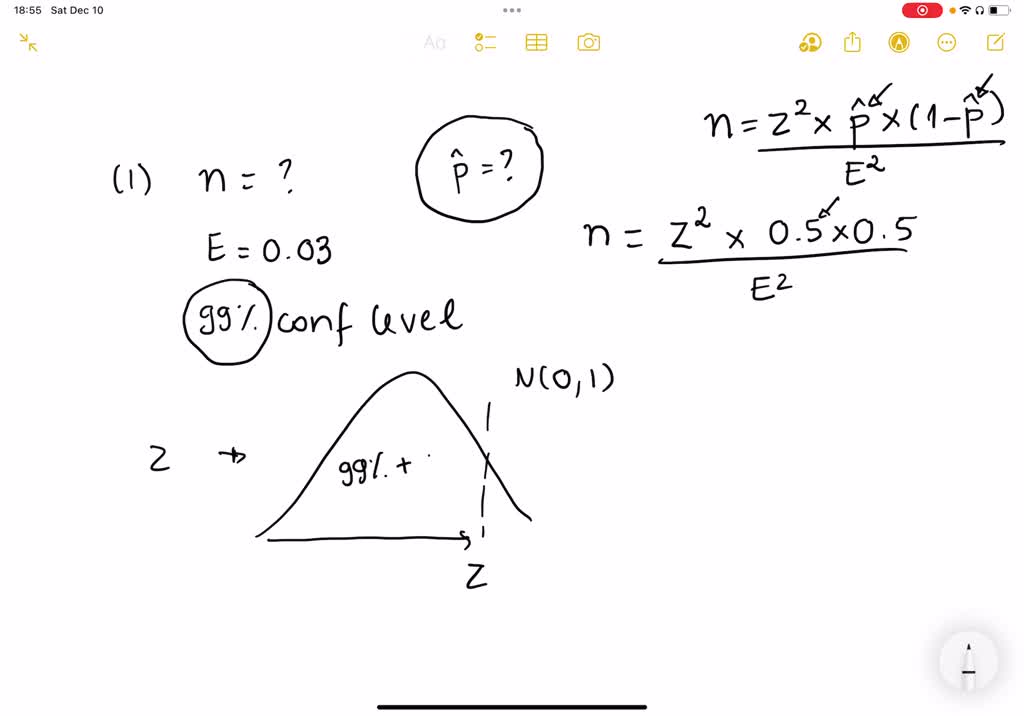 18:55 Sat Dec 10
Aa
n = z² × p̂ × (1 - p̂)
E²
(1) n = ?
p̂ = ?
n = z² × 0.5 × 0.5
E²
E = 0.03
99% conf level
N(0,1)
z → 99% +
z